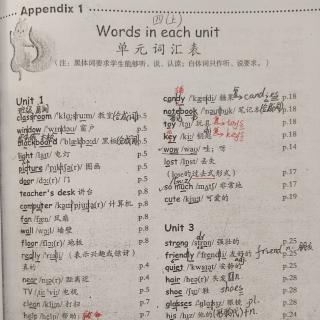 Appendix 1
四(上)
Words in each unit
单元词汇表
(注：黑体词要求学生能够听、说、认读；白体词只作听、说要求。)
Unit 1
classroom 教室 p.5
window 窗户 p.5
blackboard 黑板 p.5
light /laɪt/ 电灯 p.5
picture 图画 p.5
door /dɔː(r)/ 门 p.5
teacher's desk 讲台 p.8
computer 计算机 p.8
fan /fæn/ 风扇 p.8
wall /wɔːl/ 墙壁 p.8
floor /flɔː(r)/ 地板 p.8
really (表示兴趣或惊讶)
真的 p.4
near /nɪə(r)/ 距离近 p.4
TV 电视 p.5
clean /kliːn/ 打扫 p.7
help /help/ 帮助 p.7
candy /ˈkændi/ 糖果 p.18
notebook 笔记本 p.18
toy /tɔɪ/ 玩具 toys p.18
key /kiː/ keys p.18
wow /waʊ/ 哇；呀 p.14
lost /lɒst/ 丢失
(lose的过去式形式) p.17
so much 非常地 p.17
cute /kjuːt/ 可爱的 p.19
Unit 3
strong /strɒŋ/ 强壮的 p.25
friendly /ˈfrendli/ 友好的 friend p.25
quiet /ˈkwaɪət/ 安静的 p.25
hair /heə(r)/ 头发 p.25
shoe /ʃuː/ 鞋 shoes p.25
glasses 眼镜 pl. p.25
his /hɪz/ 他的 p.24